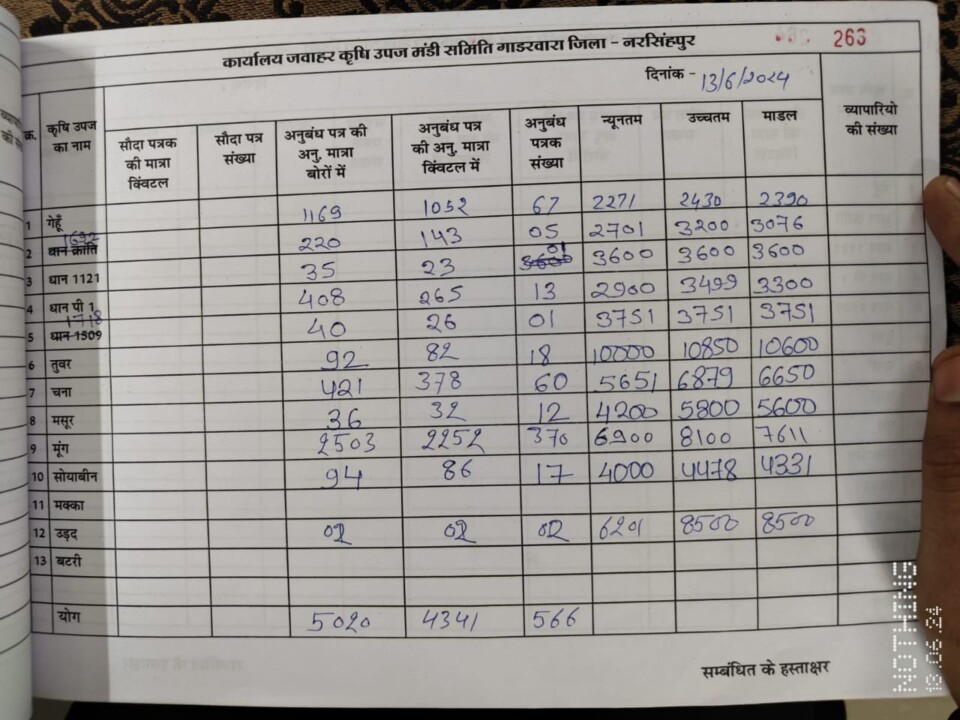 263
कार्यालय जवाहर कृषि उपज मंडी समिति गाडरवारा जिला - नरसिंहपुर
दिनांक - 13/6/2024
क्र. कृषि उपज का नाम सौदा पत्रक की मात्रा क्विंटल सौदा पत्र संख्या अनुबंध पत्र की अनु. मात्रा बोरों में अनुबंध पत्र की अनु. मात्रा क्विंटल में अनुबंध पत्रक संख्या न्यूनतम उच्चतम माडल व्यापारियो की संख्या
1 गेहूँ 1169 1052 67 2271 2430 2390
1692
2 धान क्रांति 220 143 05 2701 3200 3076
3 धान 1121 35 23 3600 01 3600 3600 3600
4 धान पी 1 408 265 13 2900 3499 3300
1718
5 धान 1509 40 26 01 3751 3751 3751
6 तुवर 92 82 18 10000 10850 10600
7 चना 421 378 60 5651 6879 6650
8 मसूर 36 32 12 4200 5800 5600
9 मूंग 2503 2252 370 6900 8100 7611
10 सोयाबीन 94 86 17 4000 4478 4331
11 मक्का
12 उड़द 02 02 02 6201 8500 8500
13 बटरी
योग 5020 4341 566
सम्बंधित के हस्ताक्षर
NOTHING